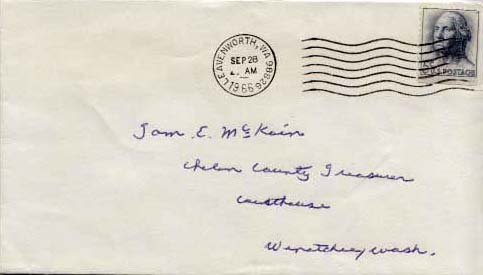 LEAVENWORTH, WA 98826
SEP 28
AM
1966
U.S. POSTAGE
Tom E. McKoin
Chelan County Treasurer
Courthouse
Wenatchee, Wash.